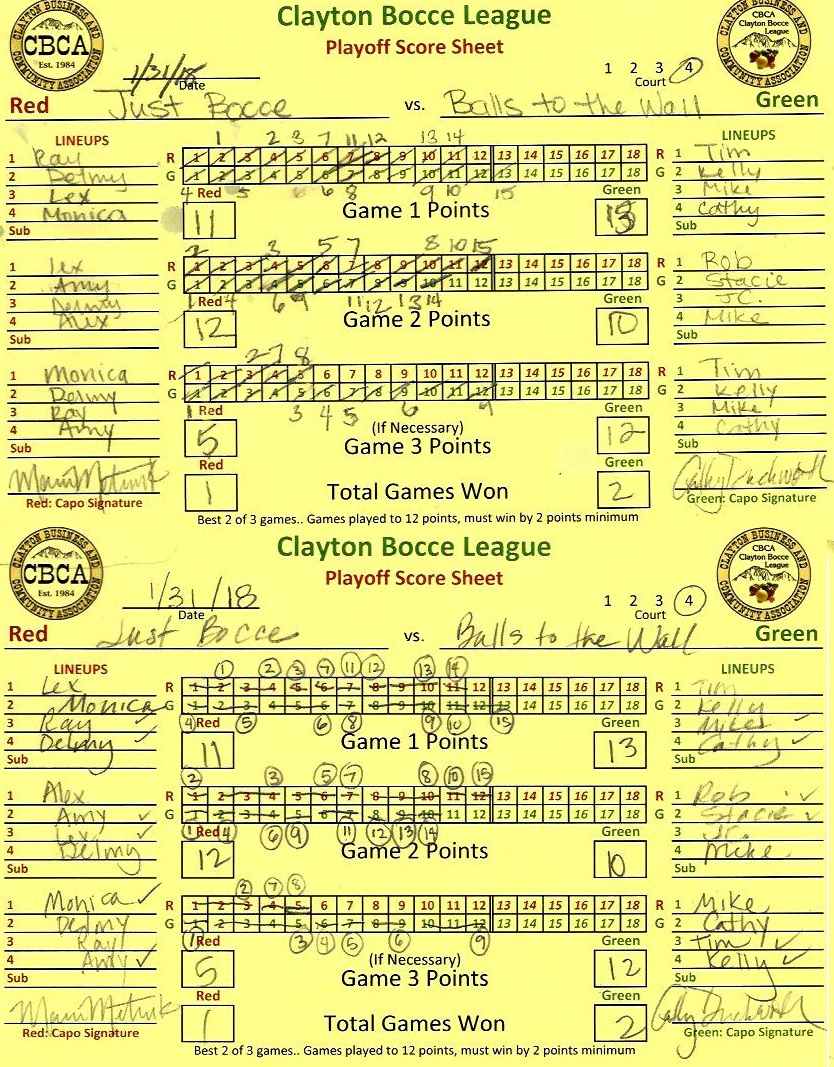 Clayton Bocce League
Playoff Score Sheet
CLAYTON BUSINESS AND COMMUNITY ASSOCIATION
CBCA
Est. 1984
CBCA
Clayton Bocce
League
1/31/18
Date
1 2 3 4
Court
Red Just Bocce vs. Balls to the Wall Green
LINEUPS
1 Ray
2 Delmy
3 Lex
4 Monica
Sub
1 2 3 7 11 12 13 14
R 1 2 3 4 5 6 7 8 9 10 11 12 13 14 15 16 17 18 R
G 1 2 3 4 5 6 7 8 9 10 11 12 13 14 15 16 17 18 G
4 5 6 8 9 10 15
Red Green
11 Game 1 Points 13
LINEUPS
1 Tim
2 Kelly
3 Mike
4 Cathy
Sub
1 Lex
2 Amy
3 Delmy
4 Alex
Sub
2 3 5 7 8 10 15
R 1 2 3 4 5 6 7 8 9 10 11 12 13 14 15 16 17 18 R
G 1 2 3 4 5 6 7 8 9 10 11 12 13 14 15 16 17 18 G
1 4 6 9 11 12 13 14
Red Green
12 Game 2 Points 10
1 Rob
2 Stacie
3 J.C.
4 Mike
Sub
1 Monica
2 Delmy
3 Ray
4 Amy
Sub
2 7 8
R 1 2 3 4 5 6 7 8 9 10 11 12 13 14 15 16 17 18 R
G 1 2 3 4 5 6 7 8 9 10 11 12 13 14 15 16 17 18 G
1 3 4 5 6 9
Red Green
(If Necessary)
5 Game 3 Points 12
1 Tim
2 Kelly
3 Mike
4 Cathy
Sub
Red Green
1 Total Games Won 2
Red: Capo Signature
Green: Capo Signature
Best 2 of 3 games.. Games played to 12 points, must win by 2 points minimum
Clayton Bocce League
Playoff Score Sheet
CLAYTON BUSINESS AND COMMUNITY ASSOCIATION
CBCA
Est. 1984
CBCA
Clayton Bocce
League
1/31/18
Date
1 2 3 4
Court
Red Just Bocce vs. Balls to the Wall Green
LINEUPS
1 Lex
2 Monica
3 Ray
4 Delmy
Sub
1 2 3 7 11 12 13 14
R 1 2 3 4 5 6 7 8 9 10 11 12 13 14 15 16 17 18 R
G 1 2 3 4 5 6 7 8 9 10 11 12 13 14 15 16 17 18 G
4 5 6 8 9 10 15
Red Green
11 Game 1 Points 13
LINEUPS
1 Tim
2 Kelly
3 Mike
4 Cathy
Sub
1 Alex
2 Amy
3 Lex
4 Delmy
Sub
2 3 5 7 8 10 15
R 1 2 3 4 5 6 7 8 9 10 11 12 13 14 15 16 17 18 R
G 1 2 3 4 5 6 7 8 9 10 11 12 13 14 15 16 17 18 G
1 4 6 9 11 12 13 14
Red Green
12 Game 2 Points 10
1 Rob
2 Stacie
3
4 Mike
Sub
1 Monica
2 Delmy
3 Ray
4 Amy
Sub
2 7 8
R 1 2 3 4 5 6 7 8 9 10 11 12 13 14 15 16 17 18 R
G 1 2 3 4 5 6 7 8 9 10 11 12 13 14 15 16 17 18 G
1 3 4 5 6 9
Red Green
(If Necessary)
5 Game 3 Points 12
1 Mike
2 Cathy
3 Tim
4 Kelly
Sub
Red Green
1 Total Games Won 2
Red: Capo Signature
Green: Capo Signature
Best 2 of 3 games.. Games played to 12 points, must win by 2 points minimum